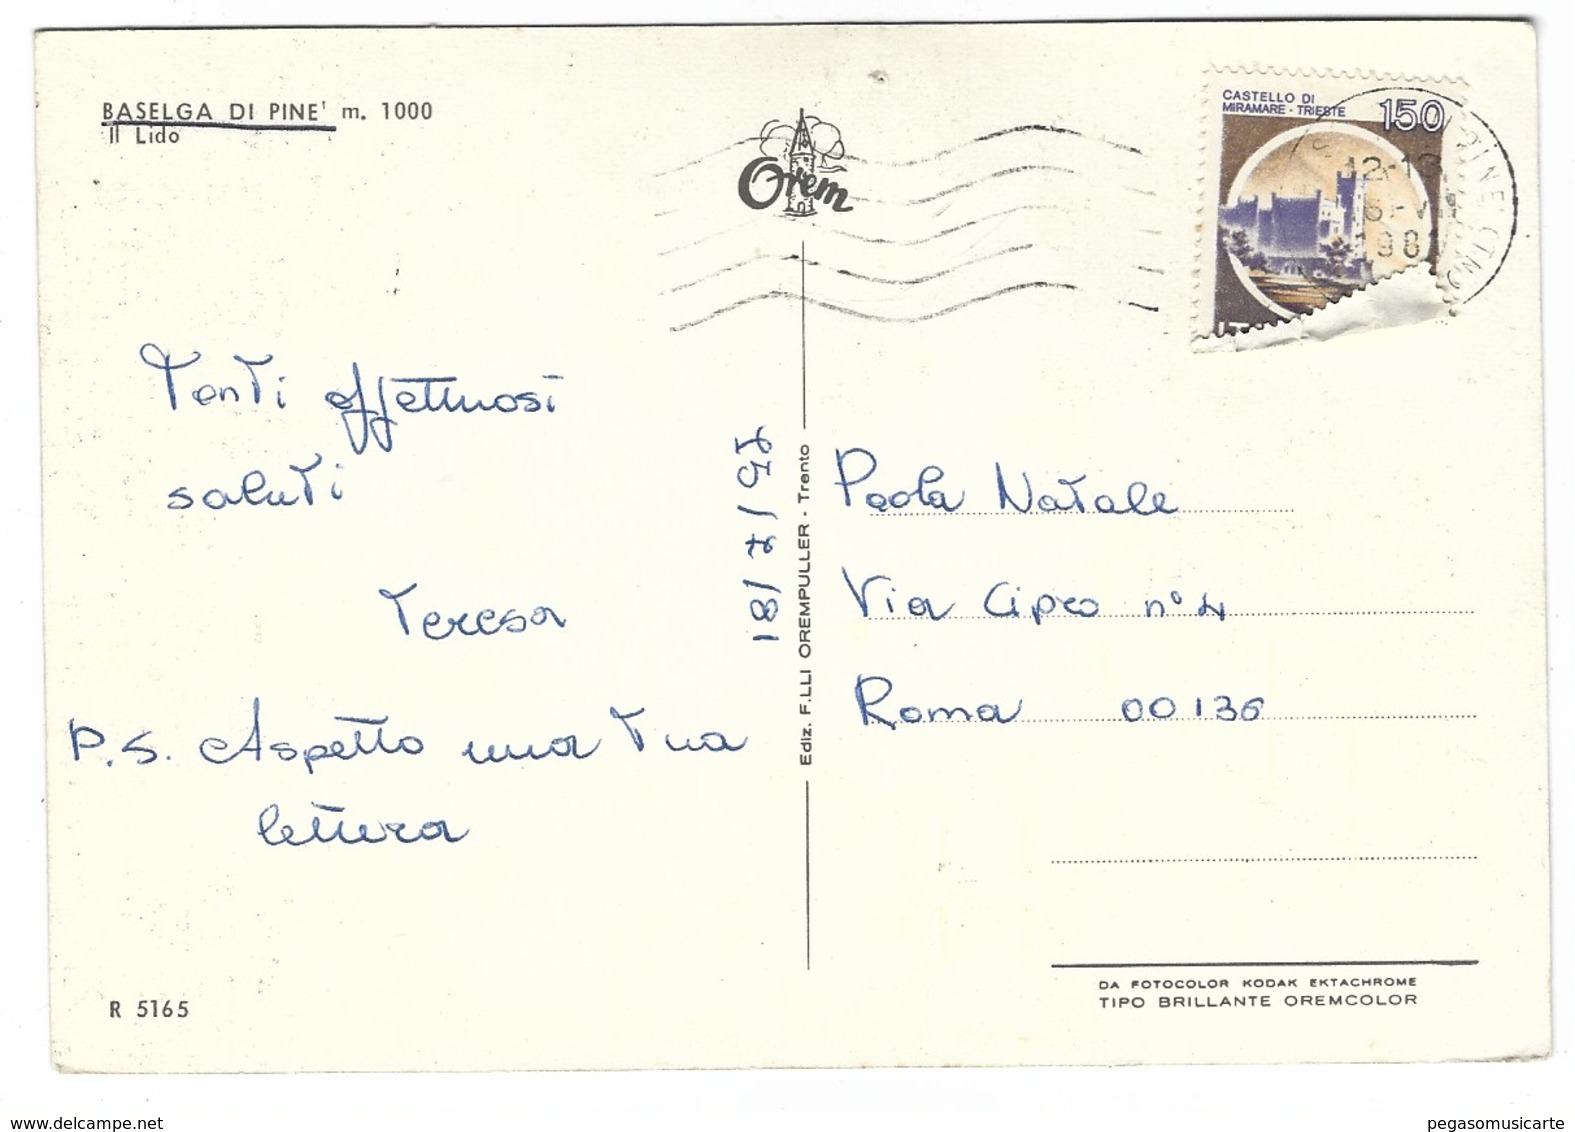 BASELGA DI PINE' m. 1000
Il Lido
Orem
CASTELLO DI
MIRAMARE - TRIESTE
150
12-13
1981
PINE' (TN)
Tanti affettuosi
saluti
Teresa
P.S. Aspetto una tua
lettera
Ediz. F.LLI OREMPULLER - Trento
Paola Natale
Via Cipro n° 4
Roma 00136
R 5165
DA FOTOCOLOR KODAK EKTACHROME
TIPO BRILLANTE OREMCOLOR
www.delcampe.net
pegasomusicarte